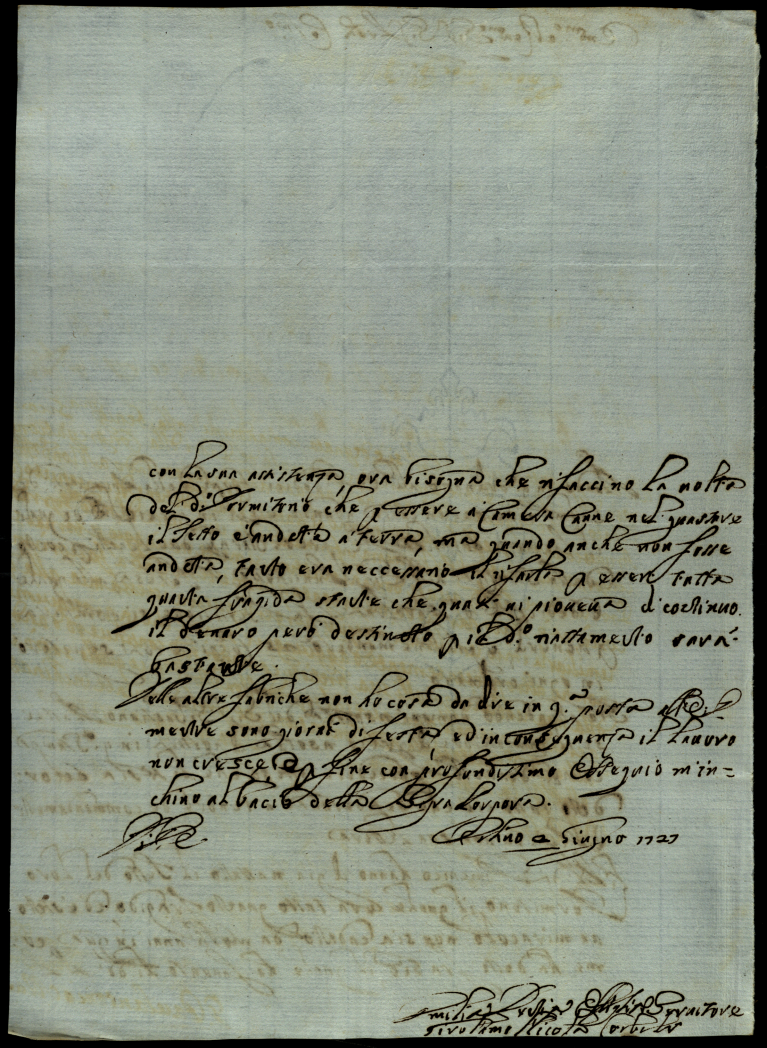 con la sua assistenza, ora bisogna che rifaccino la volta
del d.º Dormitorio che p essere a Camera Canne nel guastare
il tetto è andetta a terra, ma quando anche non fosse
andetta, tanto era neccessario il rifarla p esser tutta
guasta, fragida stante che quasi vi pioveva di continuo.
il denaro però destinato p il d.º riattamento sarà
bastante.
Delle altre fabriche non ho cosa da dire in q.ta posta
mentre sono giorni di festa ed in conseguenza il lavoro
non cresce, e p fine con profundissimo Ossequio m'in=
chino al bacio della Sagra Porpora.
Di V. E. Urbino 2 Giugno 1727
Umilis.º Servitore
Girolamo Nicola